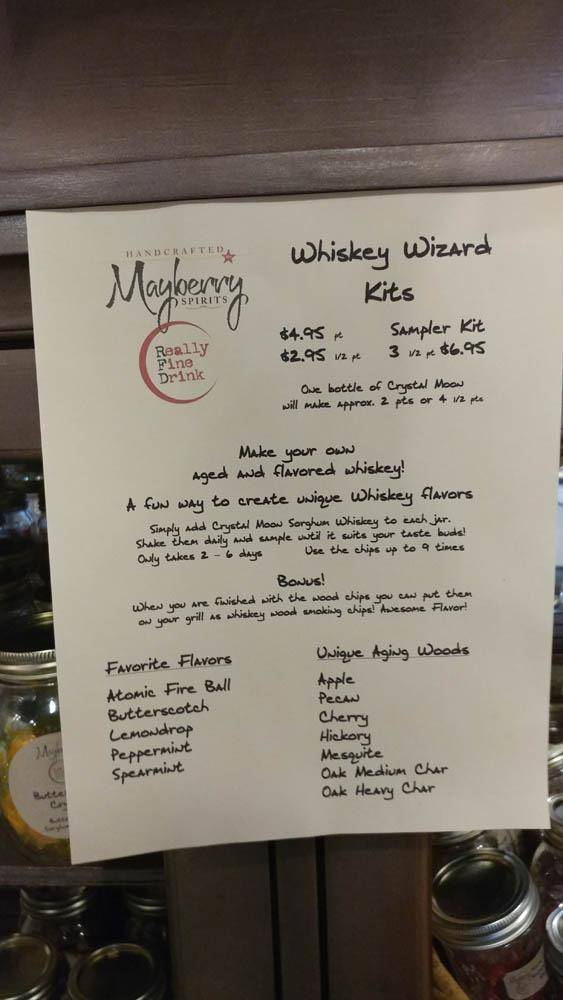 HANDCRAFTED
Mayberry
SPIRITS
Really
Fine
Drink
Whiskey Wizard
Kits
$4.95 pt
$2.95 1/2 pt
Sampler Kit
3 1/2 pt $6.95
One bottle of Crystal Moon
will make approx. 2 pts or 4 1/2 pts
Make your own
aged and flavored whiskey!
A fun way to create unique Whiskey flavors
Simply add Crystal Moon Sorghum Whiskey to each jar.
Shake them daily and sample until it suits your taste buds!
Only takes 2 - 6 days Use the chips up to 9 times
Bonus!
When you are finished with the wood chips you can put them
on your grill as whiskey wood smoking chips! Awesome Flavor!
Favorite Flavors
Atomic Fire Ball
Butterscotch
Lemondrop
Peppermint
Spearmint
Unique Aging Woods
Apple
Pecan
Cherry
Hickory
Mesquite
Oak Medium Char
Oak Heavy Char